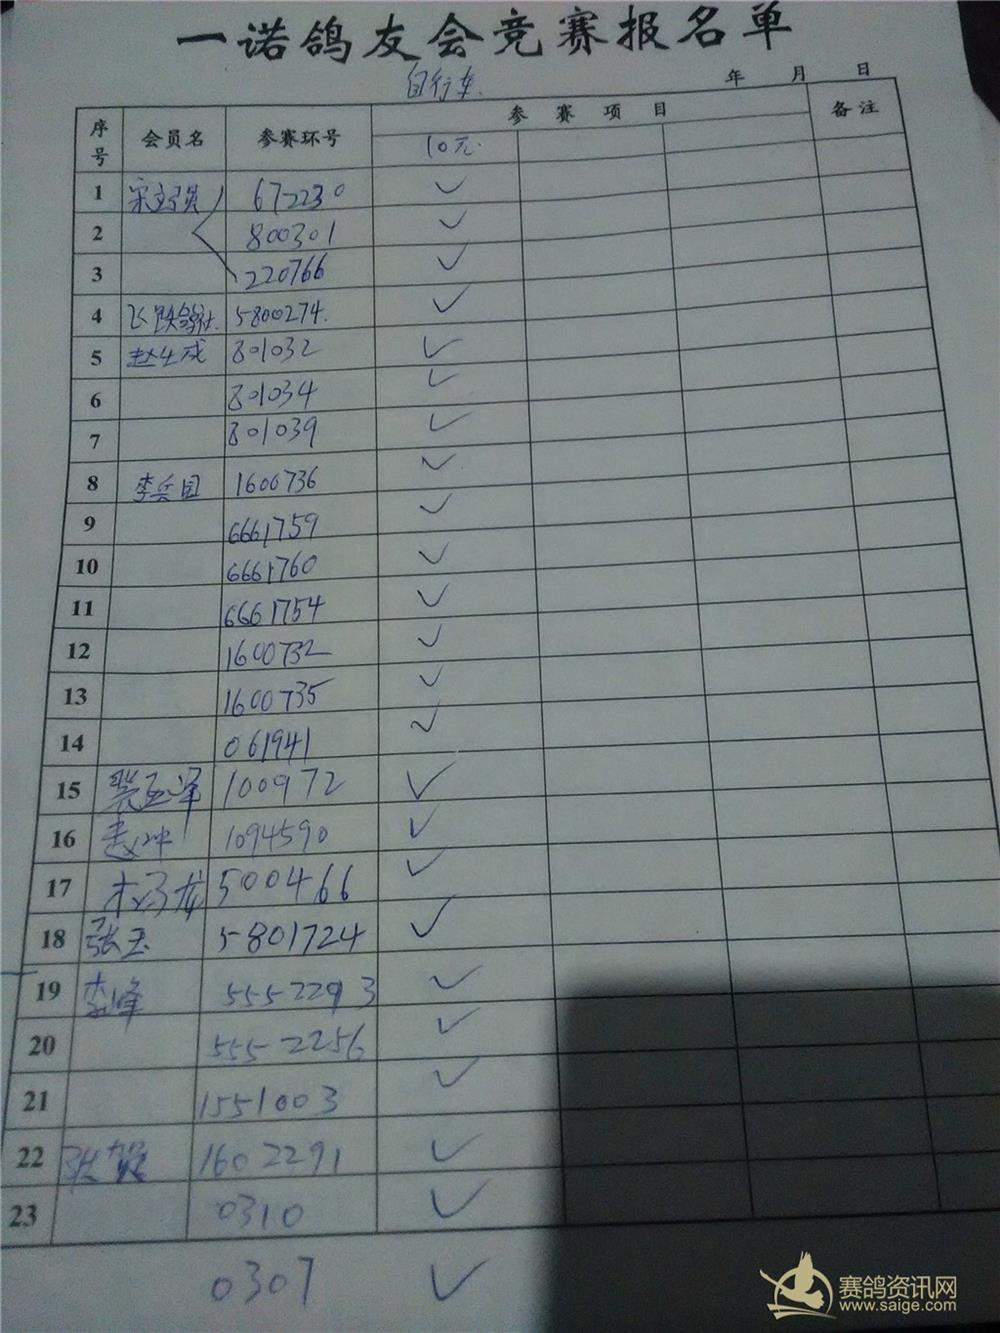 一诺鸽友会竞赛报名单
自行车. 年 月 日
序号 会员名 参赛环号 参赛项目 备注
10元.
1 672230 ✓
2 800301 ✓
3 220766 ✓
4 5800274. ✓
5 801032 ✓
6 801034 ✓
7 801039 ✓
8 李兵国 1600736 ✓
9 6661759 ✓
10 6661760 ✓
11 6661754 ✓
12 1600732 ✓
13 1600735 ✓
14 061941 ✓
15 100972 ✓
16 1094590 ✓
17 500466 ✓
18 张玉 5801724 ✓
19 李峰 5552293 ✓
20 5552256 ✓
21 1551003 ✓
22 张贺 1602291 ✓
23 0310 ✓
0307 ✓
赛鸽资讯网
www.saige.com